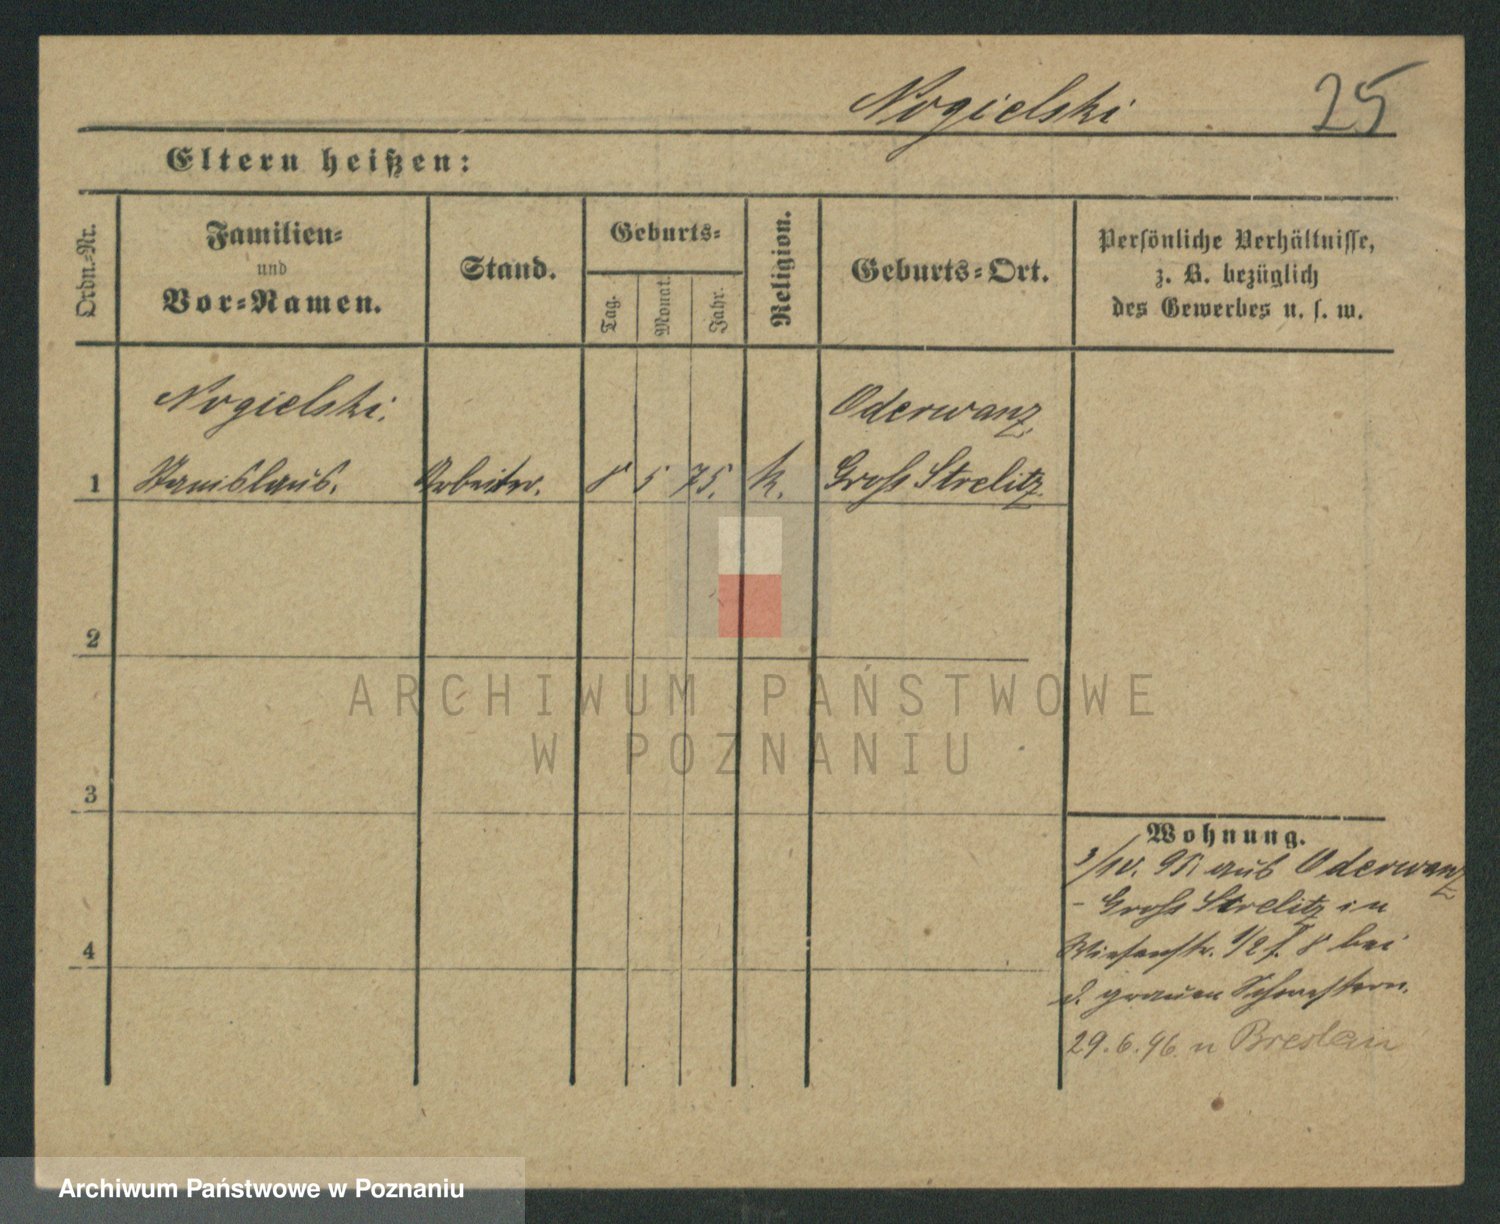 Nogielski 25
Eltern heißen:
Ordn.-Nr.
Familien-
und
Vor-Namen.
Stand.
Geburts-
Tag.
Monat.
Jahr.
Religion.
Geburts-Ort.
Persönliche Verhältnisse,
z. B. bezüglich
des Gewerbes u. s. w.
Nogielski. Oderwanz,
1 Stanislaus. Arbeiter. 8 5 75. k. Gross Strelitz
2
3
4
Wohnung.
3/10. 95 aus Oderwanz
- Gross Strelitz in
Wiesenstr. 1/2 f. 8 bei
d. grauen Schwestern.
29.6.96 n Breslau
ARCHIWUM PAŃSTWOWE
W POZNANIU
Archiwum Państwowe w Poznaniu